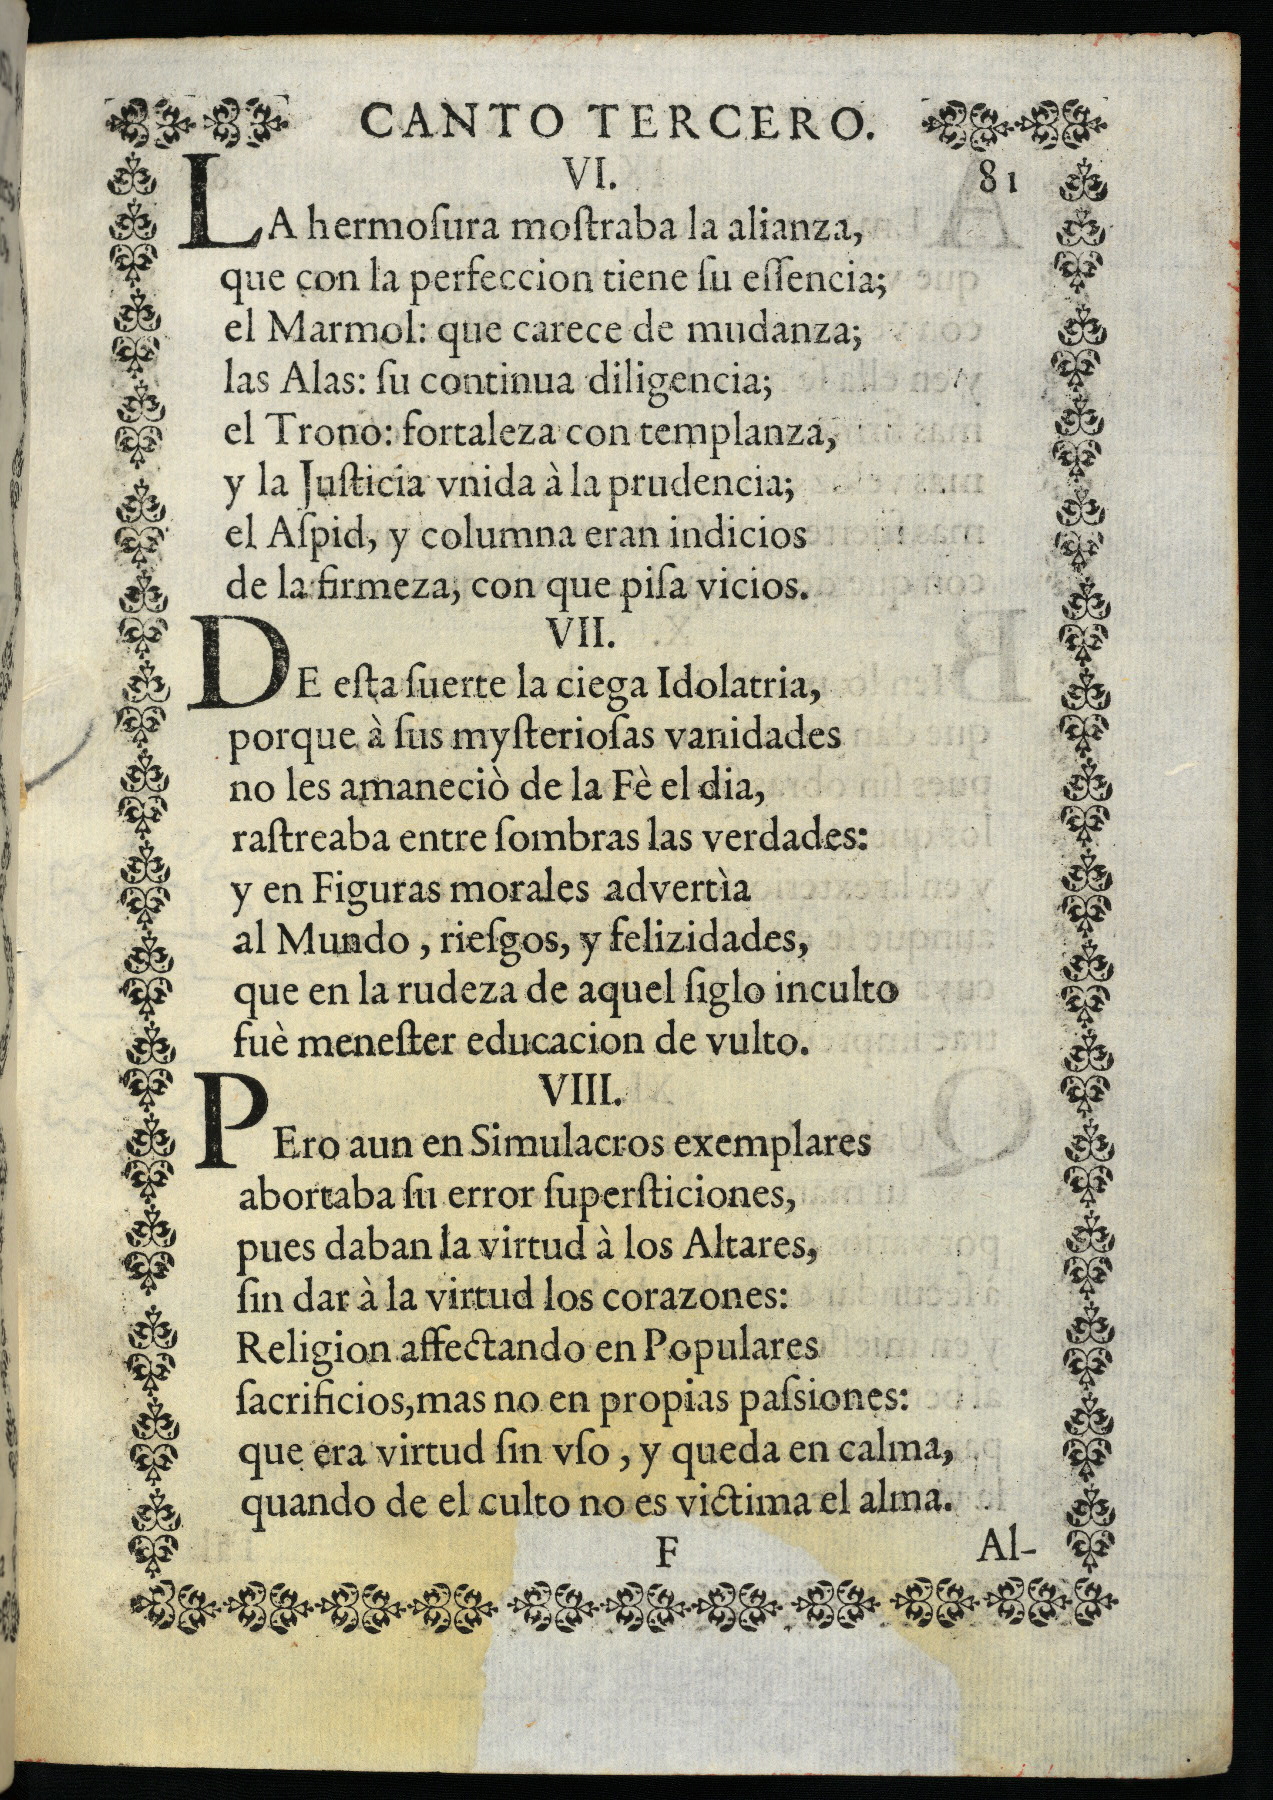 CANTO TERCERO.
VI. 81
LA hermoſura moſtraba la alianza,
que con la perfeccion tiene ſu eſſencia;
el Marmol: que carece de mudanza;
las Alas: ſu continua diligencia;
el Trono: fortaleza con templanza,
y la Juſticia vnida à la prudencia;
el Aſpid, y columna eran indicios
de la firmeza, con que piſa vicios.
VII.
DE eſta ſuerte la ciega Idolatria,
porque à ſus myſterioſas vanidades
no les amaneciò de la Fè el dia,
raſtreaba entre ſombras las verdades:
y en Figuras morales advertìa
al Mundo, rieſgos, y felizidades,
que en la rudeza de aquel ſiglo inculto
fuè meneſter educacion de vulto.
VIII.
PEro aun en Simulacros exemplares
abortaba ſu error ſuperſticiones,
pues daban la virtud à los Altares,
ſin dar à la virtud los corazones:
Religion affectando en Populares
ſacrificios, mas no en propias paſsiones:
que era virtud ſin vſo, y queda en calma,
quando de el culto no es victima el alma.
F Al-